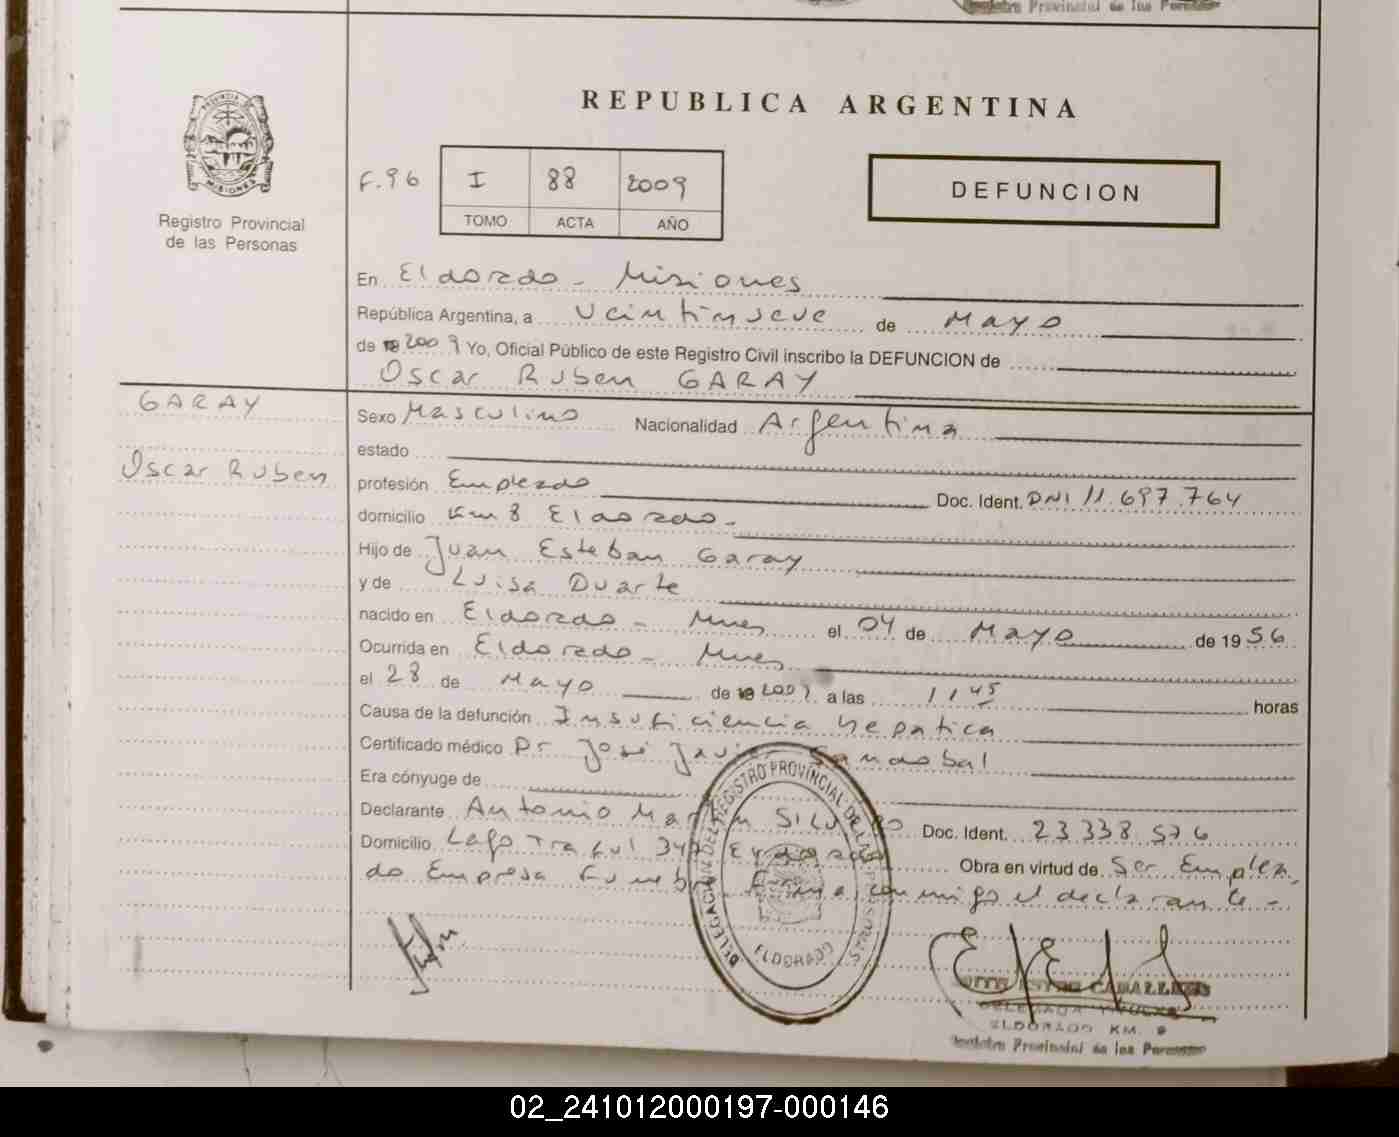 Registro Provincial de las Personas
REPUBLICA ARGENTINA
PROVINCIA DE
MISIONES
Registro Provincial
de las Personas
F.96 I 88 2009
TOMO ACTA AÑO
DEFUNCION
En Eldorado - Misiones
República Argentina, a Veintinueve de Mayo
de 2009 Yo, Oficial Público de este Registro Civil inscribo la DEFUNCION de
Oscar Ruben GARAY
GARAY
Oscar Ruben
Sexo Masculino Nacionalidad Argentina
estado
profesión Empleado Doc. Ident. DNI 11.697.764
domicilio Km 8 Eldorado -
Hijo de Juan Esteban Garay
y de Luisa Duarte
nacido en Eldorado - Mnes el 04 de Mayo de 1956
Ocurrida en Eldorado - Mnes
el 28 de Mayo de 2009 a las 11,45 horas
Causa de la defunción Insuficiencia hepatica
Certificado médico Dr José Javier Sandobal
Era cónyuge de
Declarante Antonio Martin Doc. Ident. 23.338.576
Domicilio Lago Traful Eldorado Obra en virtud de Ser Emplea
do Empresa Funebre Firma conmigo el declarante -
DELEGACION DEL REGISTRO PROVINCIAL DE LAS PERSONAS
ELDORADO
CABALLERO
DELEGADA TITULAR
ELDORADO KM. 9
Registro Provincial de las Personas
02_241012000197-000146